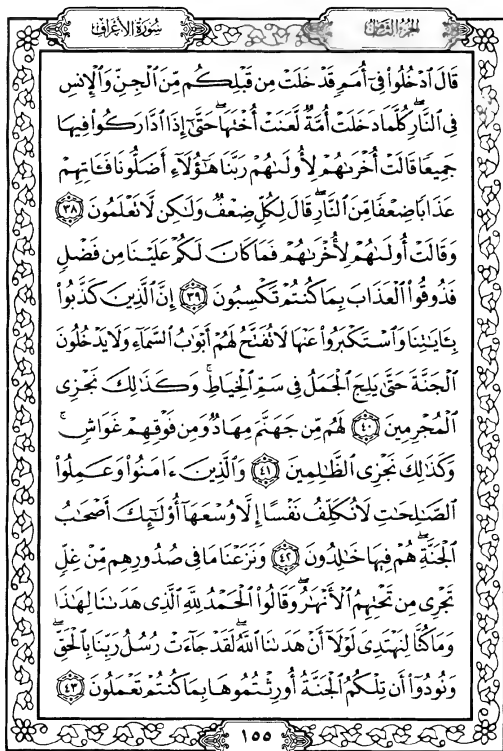 سُورَةُ الأَعْرَافِ
الجُزْءُ الثَّامِنُ
قَالَ ٱدْخُلُوا۟ فِىٓ أُمَمٍ قَدْ خَلَتْ مِن قَبْلِكُم مِّنَ ٱلْجِنِّ وَٱلْإِنسِ
فِى ٱلنَّارِ ۖ كُلَّمَا دَخَلَتْ أُمَّةٌ لَّعَنَتْ أُخْتَهَا ۖ حَتَّىٰٓ إِذَا ٱدَّارَكُوا۟ فِيهَا
جَمِيعًا قَالَتْ أُخْرَىٰهُمْ لِأُولَىٰهُمْ رَبَّنَا هَٰٓؤُلَآءِ أَضَلُّونَا فَـَٔاتِهِمْ
عَذَابًا ضِعْفًا مِّنَ ٱلنَّارِ ۖ قَالَ لِكُلٍّ ضِعْفٌ وَلَٰكِن لَّا تَعْلَمُونَ ٣٨
وَقَالَتْ أُولَىٰهُمْ لِأُخْرَىٰهُمْ فَمَا كَانَ لَكُمْ عَلَيْنَا مِن فَضْلٍ
فَذُوقُوا۟ ٱلْعَذَابَ بِمَا كُنتُمْ تَكْسِبُونَ ٣٩ إِنَّ ٱلَّذِينَ كَذَّبُوا۟
بِـَٔايَٰتِنَا وَٱسْتَكْبَرُوا۟ عَنْهَا لَا تُفَتَّحُ لَهُمْ أَبْوَٰبُ ٱلسَّمَآءِ وَلَا يَدْخُلُونَ
ٱلْجَنَّةَ حَتَّىٰ يَلِجَ ٱلْجَمَلُ فِى سَمِّ ٱلْخِيَاطِ ۚ وَكَذَٰلِكَ نَجْزِى
ٱلْمُجْرِمِينَ ٤٠ لَهُم مِّن جَهَنَّمَ مِهَادٌ وَمِن فَوْقِهِمْ غَوَاشٍ ۚ
وَكَذَٰلِكَ نَجْزِى ٱلظَّٰلِمِينَ ٤١ وَٱلَّذِينَ ءَامَنُوا۟ وَعَمِلُوا۟
ٱلصَّٰلِحَٰتِ لَا نُكَلِّفُ نَفْسًا إِلَّا وُسْعَهَآ أُو۟لَٰٓئِكَ أَصْحَٰبُ
ٱلْجَنَّةِ ۖ هُمْ فِيهَا خَٰلِدُونَ ٤٢ وَنَزَعْنَا مَا فِى صُدُورِهِم مِّنْ غِلٍّ
تَجْرِى مِن تَحْتِهِمُ ٱلْأَنْهَٰرُ ۖ وَقَالُوا۟ ٱلْحَمْدُ لِلَّهِ ٱلَّذِى هَدَىٰنَا لِهَٰذَا
وَمَا كُنَّا لِنَهْتَدِىَ لَوْلَآ أَنْ هَدَىٰنَا ٱللَّهُ ۖ لَقَدْ جَآءَتْ رُسُلُ رَبِّنَا بِٱلْحَقِّ ۖ
وَنُودُوٓا۟ أَن تِلْكُمُ ٱلْجَنَّةُ أُورِثْتُمُوهَا بِمَا كُنتُمْ تَعْمَلُونَ ٤٣
١٥٥